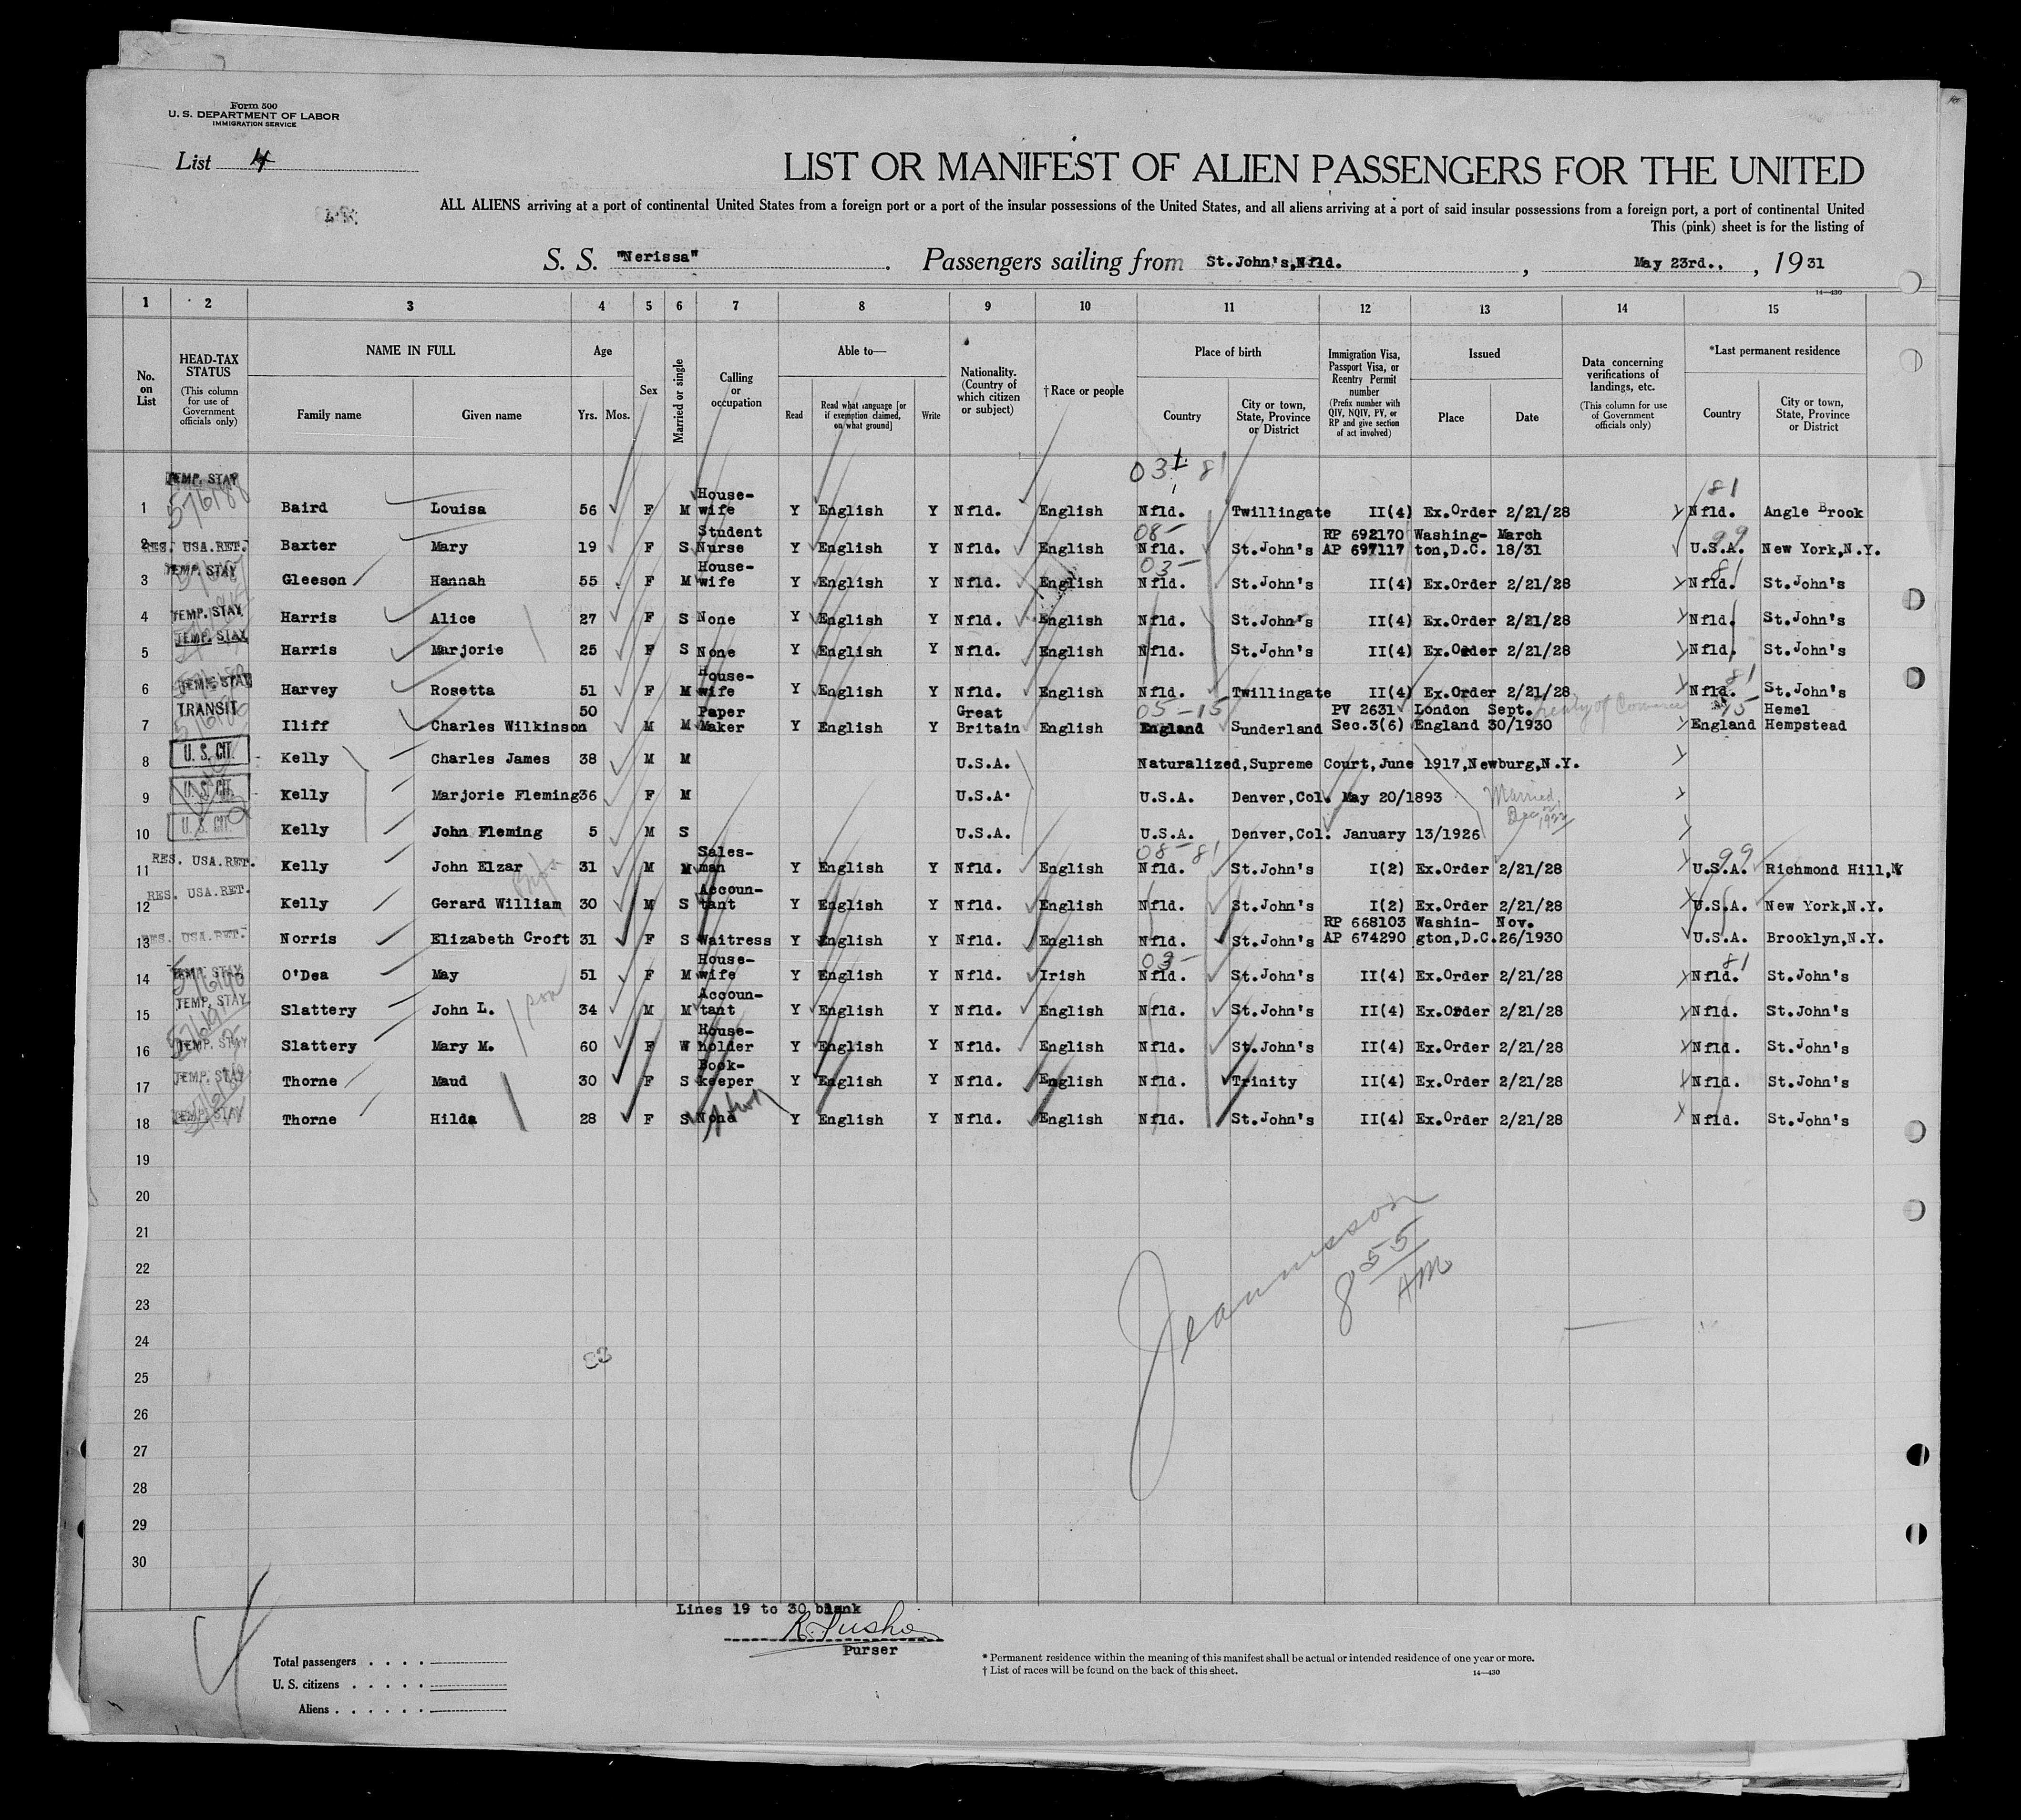 Form 500
U. S. DEPARTMENT OF LABOR
IMMIGRATION SERVICE
List 4
LIST OR MANIFEST OF ALIEN PASSENGERS FOR THE UNITED
ALL ALIENS arriving at a port of continental United States from a foreign port or a port of the insular possessions of the United States, and all aliens arriving at a port of said insular possessions from a foreign port, a port of continental United
This (pink) sheet is for the listing of
S. S. "Nerissa". Passengers sailing from St.John's,Nfld., May 23rd., , 1931
14—430
1 2 3 4 5 6 7 8 9 10 11 12 13 14 15
No. on List
HEAD-TAX STATUS (This column for use of Government officials only)
NAME IN FULL
Family name Given name
Age
Yrs. Mos.
Sex
Married or single
Calling or occupation
Able to—
Read
Read what language [or if exemption claimed, on what ground]
Write
Nationality. (Country of which citizen or subject)
† Race or people
Place of birth
Country
City or town, State, Province or District
Immigration Visa, Passport Visa, or Reentry Permit number (Prefix number with QIV, NQIV, PV, or RP and give section of act involved)
Issued
Place Date
Data concerning verifications of landings, etc. (This column for use of Government officials only)
*Last permanent residence
Country
City or town, State, Province or District
03 81
81
1 TEMP. STAY 576188 Baird Louisa 56 F M House-wife Y English Y Nfld. English Nfld. Twillingate II(4) Ex.Order 2/21/28 Nfld. Angle Brook
08- 99
2 RES. USA.RET. Baxter Mary 19 F S Student Nurse Y English Y Nfld. English Nfld. St.John's RP 692170 AP 697117 Washing-ton,D.C. March 18/31 U.S.A. New York,N.Y.
03- 81
3 TEMP. STAY Gleeson Hannah 55 F M House-wife Y English Y Nfld. English Nfld. St.John's II(4) Ex.Order 2/21/28 Nfld. St.John's
4 TEMP. STAY Harris Alice 27 F S None Y English Y Nfld. English Nfld. St.John's II(4) Ex.Order 2/21/28 Nfld. St.John's
5 TEMP. STAY Harris Marjorie 25 F S None Y English Y Nfld. English Nfld. St.John's II(4) Ex.Order 2/21/28 Nfld. St.John's
81
6 TEMP. STAY Harvey Rosetta 51 F M House-wife Y English Y Nfld. English Nfld. Twillingate II(4) Ex.Order 2/21/28 Nfld. St.John's
05-15 Treaty of Comerce 15
7 TRANSIT Iliff Charles Wilkinson 50 M M Paper Maker Y English Y Great Britain English England Sunderland PV 2631 Sec.3(6) London England Sept. 30/1930 England Hemel Hempstead
8 U. S. CIT. Kelly Charles James 38 M M U.S.A. Naturalized,Supreme Court,June 1917,Newburg,N.Y.
9 U. S. CIT. Kelly Marjorie Fleming 36 F M U.S.A. U.S.A. Denver,Col. May 20/1893 Married Dec 1922
10 U. S. CIT. Kelly John Fleming 5 M S U.S.A. U.S.A. Denver,Col. January 13/1926
08-81 99
11 RES. USA.RET. Kelly John Elzar 31 M M Sales-man Y English Y Nfld. English Nfld. St.John's I(2) Ex.Order 2/21/28 U.S.A. Richmond Hill,N
12 RES. USA.RET. Kelly Gerard William 30 M S Accoun-tant Y English Y Nfld. English Nfld. St.John's I(2) Ex.Order 2/21/28 U.S.A. New York,N.Y.
13 RES. USA.RET. Norris Elizabeth Croft 31 F S Waitress Y English Y Nfld. English Nfld. St.John's RP 668103 AP 674290 Washin-gton,D.C. Nov. 26/1930 U.S.A. Brooklyn,N.Y.
03- 81
14 TEMP. STAY 576190 O'Dea May 51 F M House-wife Y English Y Nfld. Irish Nfld. St.John's II(4) Ex.Order 2/21/28 Nfld. St.John's
15 TEMP. STAY Slattery John L. son 34 M M Accoun-tant Y English Y Nfld. English Nfld. St.John's II(4) Ex.Order 2/21/28 Nfld. St.John's
16 TEMP. STAY Slattery Mary M. 60 F W House-holder Y English Y Nfld. English Nfld. St.John's II(4) Ex.Order 2/21/28 Nfld. St.John's
17 TEMP. STAY Thorne Maud 30 F S Book-keeper Y English Y Nfld. English Nfld. Trinity II(4) Ex.Order 2/21/28 Nfld. St.John's
18 TEMP. STAY Thorne Hilda 28 F S None Y English Y Nfld. English Nfld. St.John's II(4) Ex.Order 2/21/28 Nfld. St.John's
19
20
21
22
23
24
25
26
27
28
29
30
8 55 AM
Lines 19 to 30 blank
Purser
Total passengers
U. S. citizens
Aliens
* Permanent residence within the meaning of this manifest shall be actual or intended residence of one year or more.
† List of races will be found on the back of this sheet.
14—430